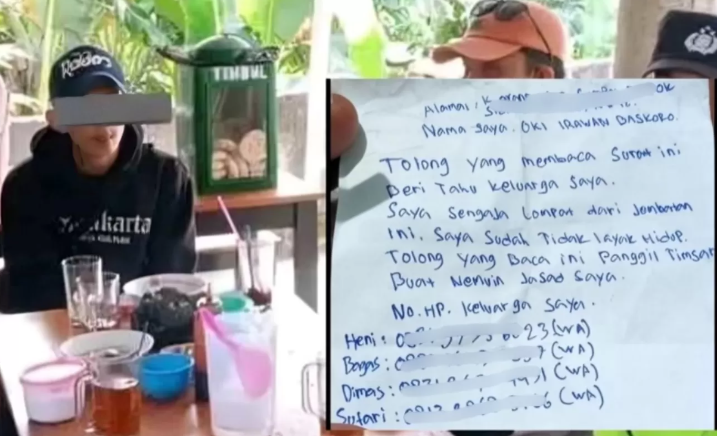 Raiders
TIMBUL
karta
Alamat :
OK
Nama Saya. OKI IRAWAN BASKORO.
Tolong Yang membaca Surat ini
Beri Tahu keluarga Saya.
Saya Sengaja Lompat dari Jembatan
Ini. Saya Sudah Tidak layak Hidup.
Tolong Yang Baca ini Panggil Timsar
Buat Nemuin Jasad Saya.
No. HP. keluarga Saya.
Heni : 23 (WA)
Bagas : (WA)
Dimas : (WA)
Sutari : (WA)